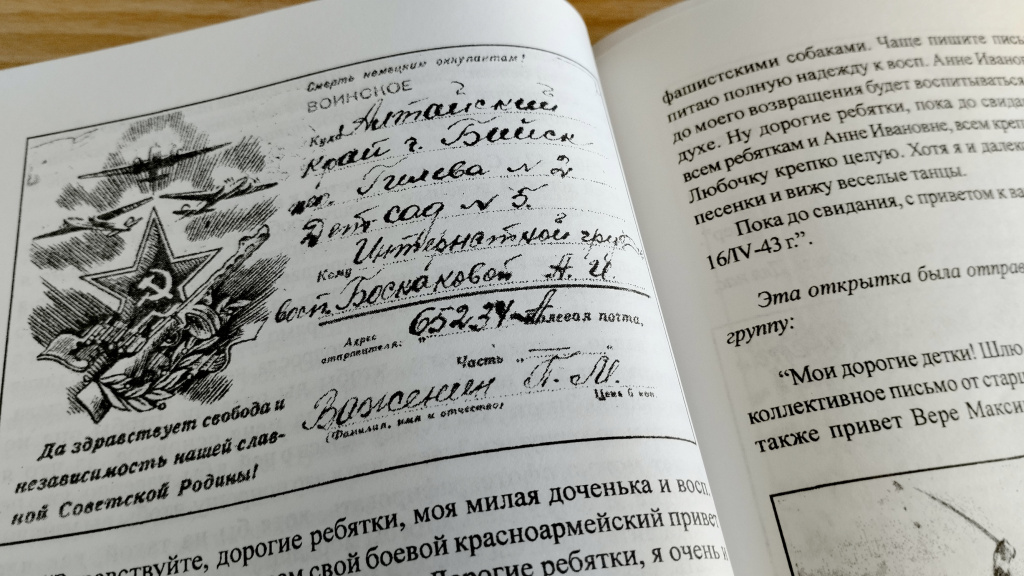 Смерть немецким оккупантам!
ВОИНСКОЕ
Куда Алтайский
край г. Бийск
пер. Гилева № 2
Детсад № 5.
Кому Интернатной
восп. Боскаковой А. И
Адрес отправителя: 65234-А Полевая почта,
Часть
Важенин П. М.
(Фамилия, имя и отчество)
Цена 6 коп
Да здравствует свобода и
независимость нашей слав-
ной Советской Родины!
дорогие ребятки, моя милая доченька и восп.
свой боевой красноармейский привет
Дорогие ребятки, я очень
фашистскими собаками. Чаще пишите
питаю полную надежду к восп. Анне
до моего возвращения будет воспитываться
духе. Ну дорогие ребятки, пока до
всем ребяткам и Анне Ивановне, всем
Любочку крепко целую. Хотя я и
песенки и вижу веселые танцы.
Пока до свидания, с приветом к
16/IV-43 г.”.
Эта открытка была
группу:
“Мои дорогие детки! Шлю
коллективное письмо от
также привет Вере